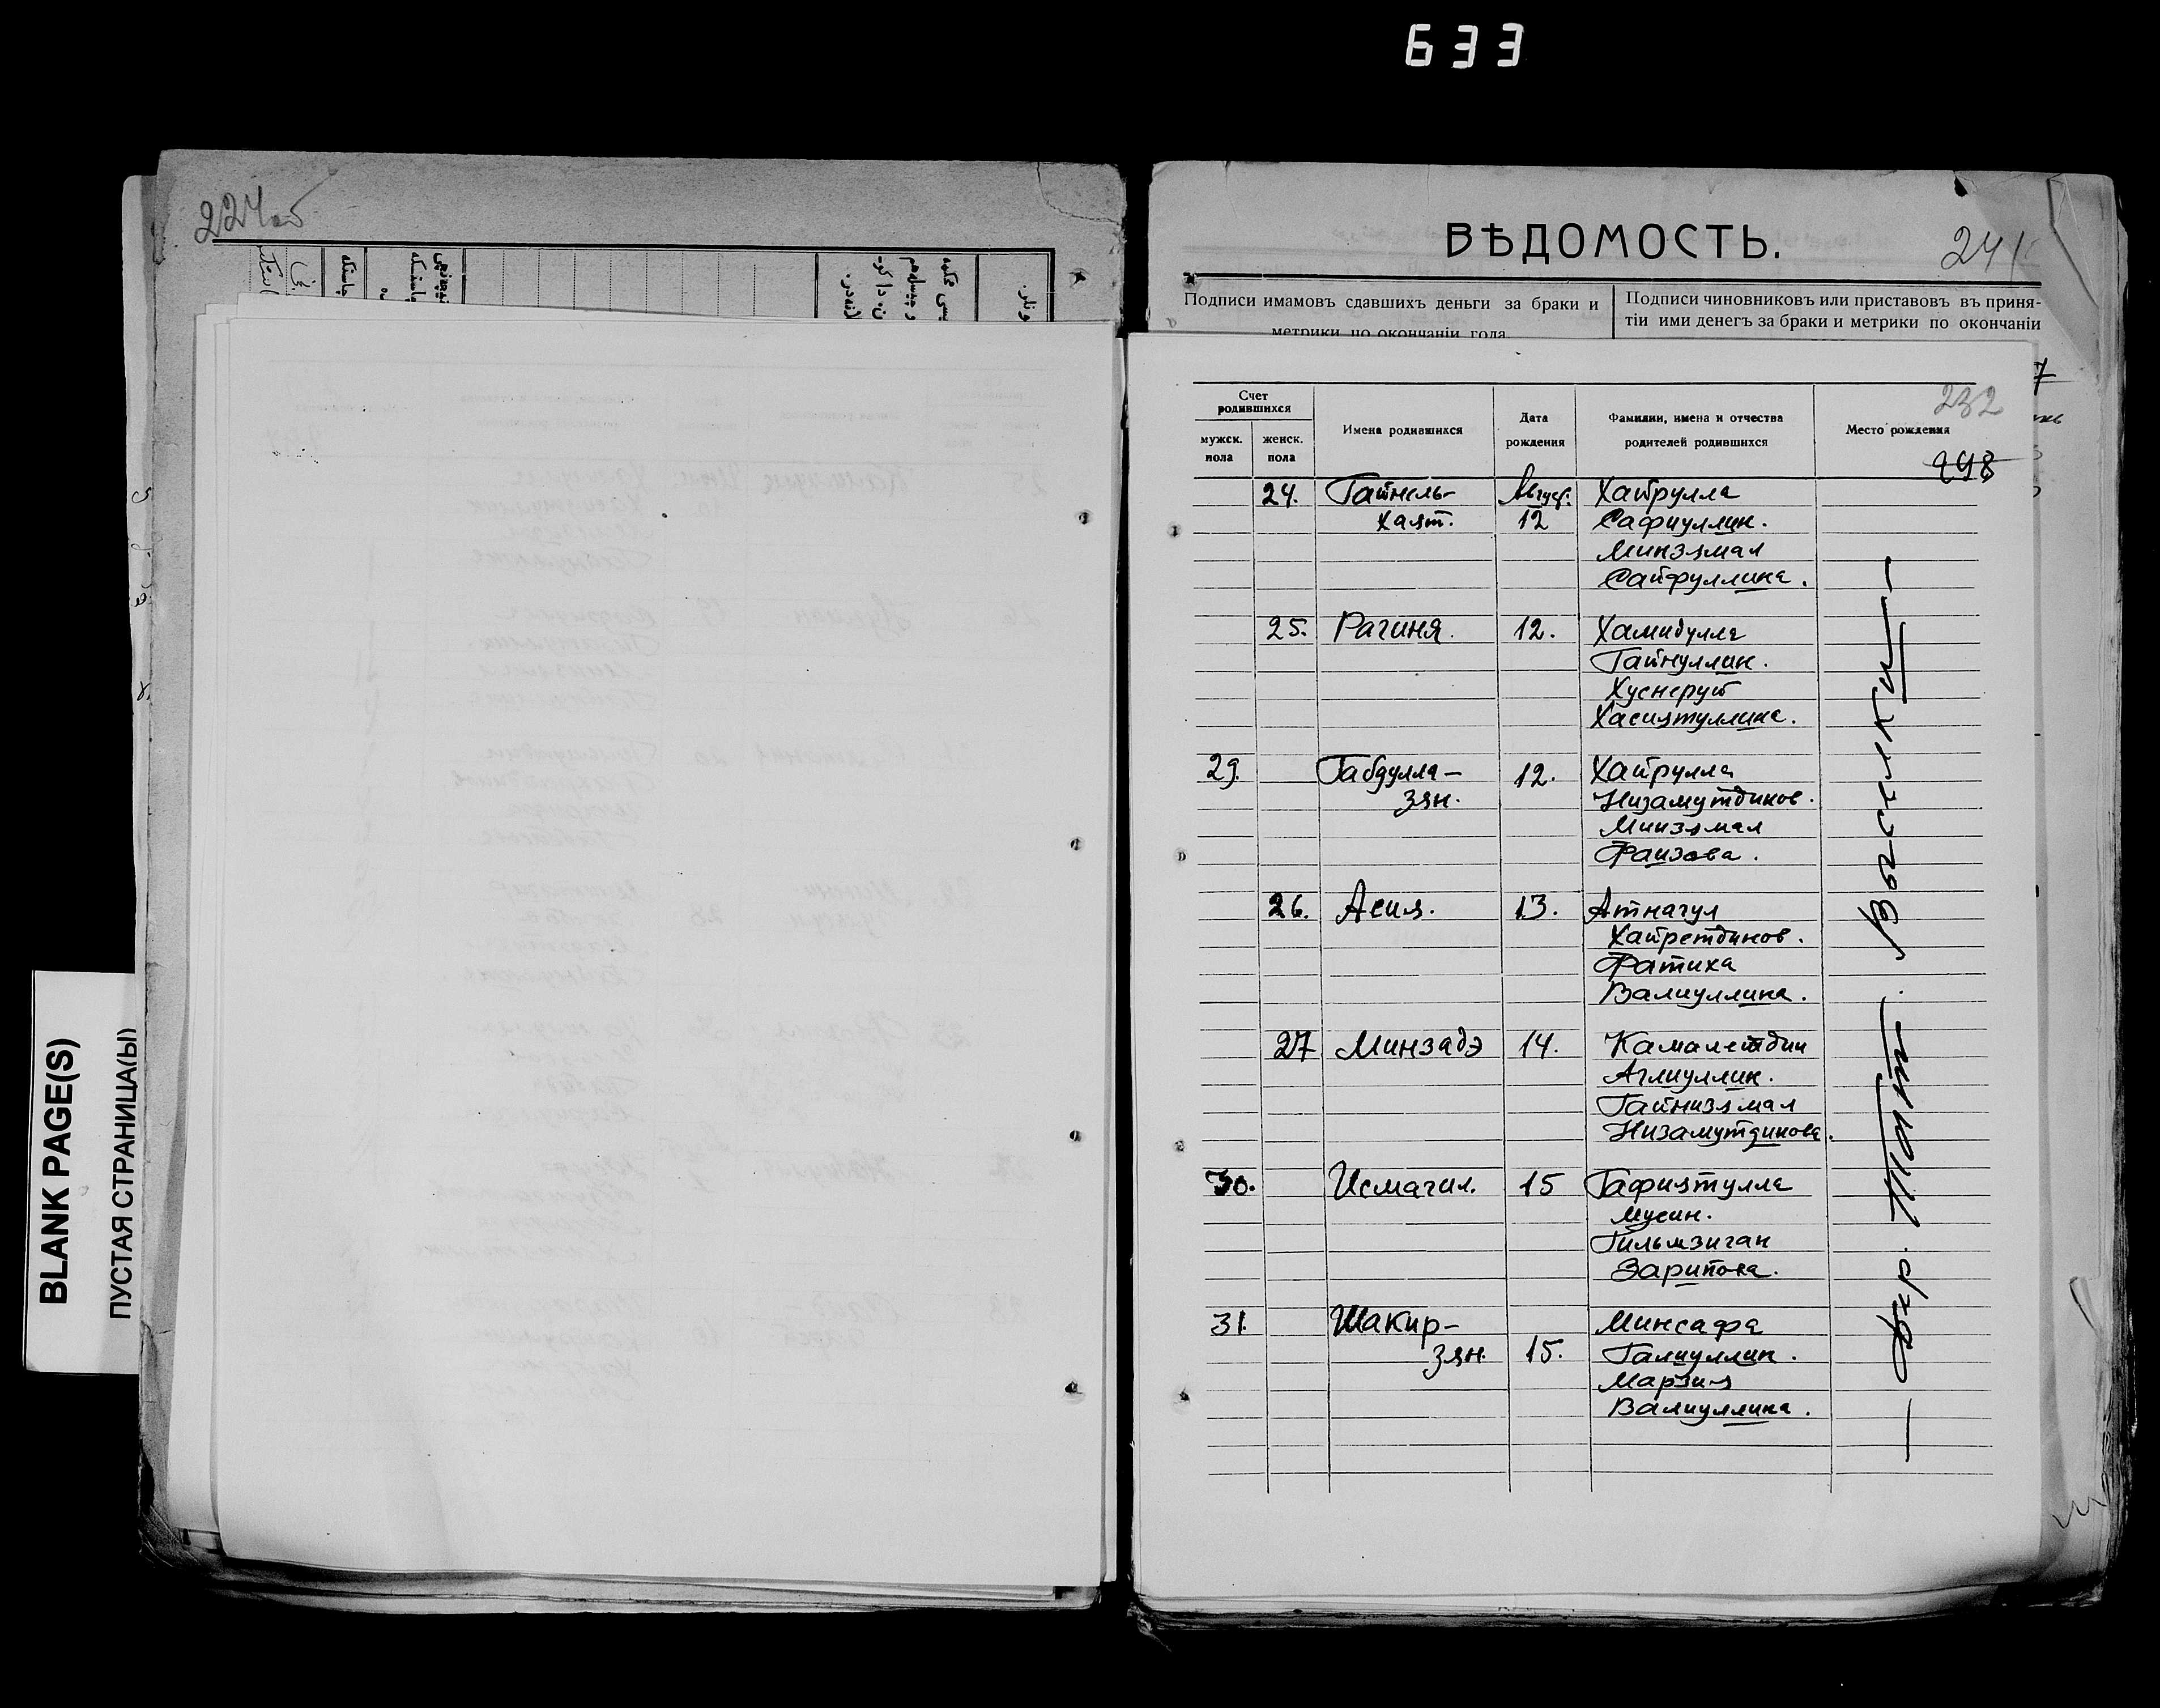 633
224об
ВѢДОМОСТЬ.
241
Подписи имамовъ сдавшихъ деньги за браки и
метрики по окончаніи года
Подписи чиновниковъ или приставовъ въ приня-
тіи ими денегъ за браки и метрики по окончаніи
232
248
Счет родившихся
мужск. пола
женск. пола
Имена родившихся
Дата рождения
Фамилии, имена и отчества родителей родившихся
Место рождения
24. Гайнель- Август Хайрулла
хаят. 12 Сафиуллин.
Минзямал
Сайфуллина.
25. Рагиня. 12. Хамидулла
Гайнуллин.
Хуснеруй
Хасиятуллина.
29. Габдулла- 12. Хайрулла
зян. Низамутдинов.
Минзямал
Фаизова.
26. Асия. 13. Атнагул
Хайретдинов.
Фатиха
Валиуллина.
27 Минзадэ 14. Камалетдин
Аглиуллин.
Гайнизямал
Низамутдинова.
30. Исмагил. 15 Гафиятулла
Мусин.
Гильмзиган
Зарипова.
31. Шакир- Минсафа
зян. 15. Галиуллин.
Марзия
Валиуллина.
— дер. Тат. Васелки —
BLANK PAGE(S)
ПУСТАЯ СТРАНИЦА(Ы)